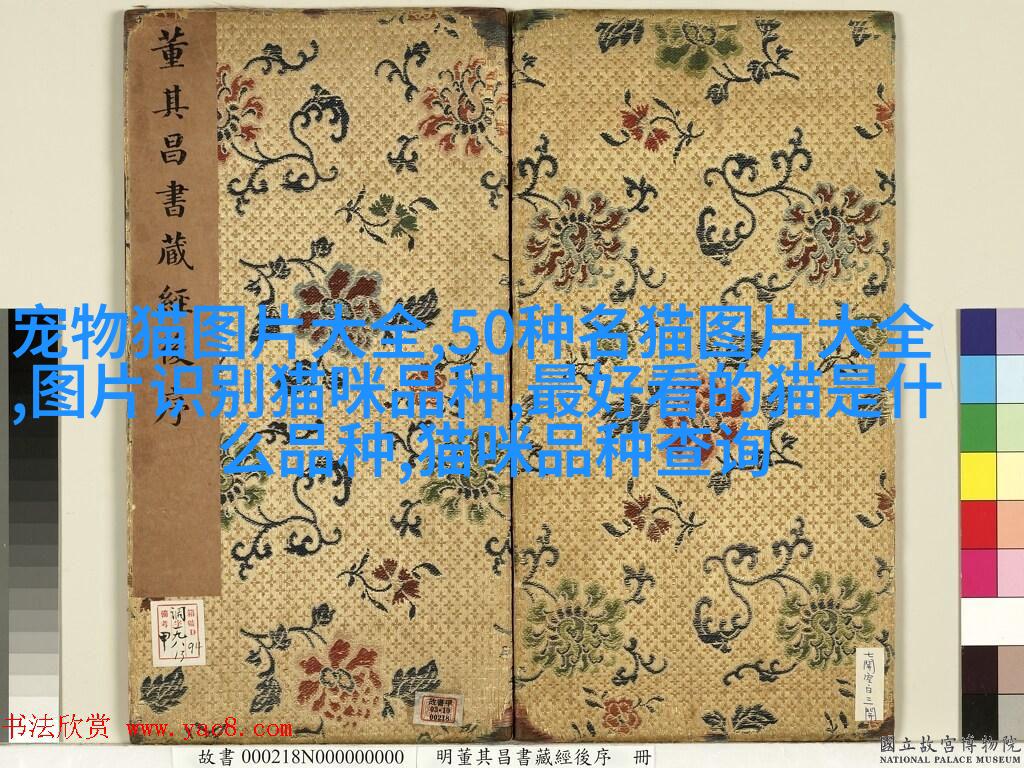 董其昌書藏經後序
宠物猫图片大全,50种名猫图片大全
,图片识别猫咪品种,最好看的猫是什
么品种,猫咪品种查询
故書甲
03•10
00218
书法欣赏 www.yac8.com
故書 000218N000000000
明董其昌書藏經後序 冊
國立故宮博物院
NATIONAL PALACE MUSEUM